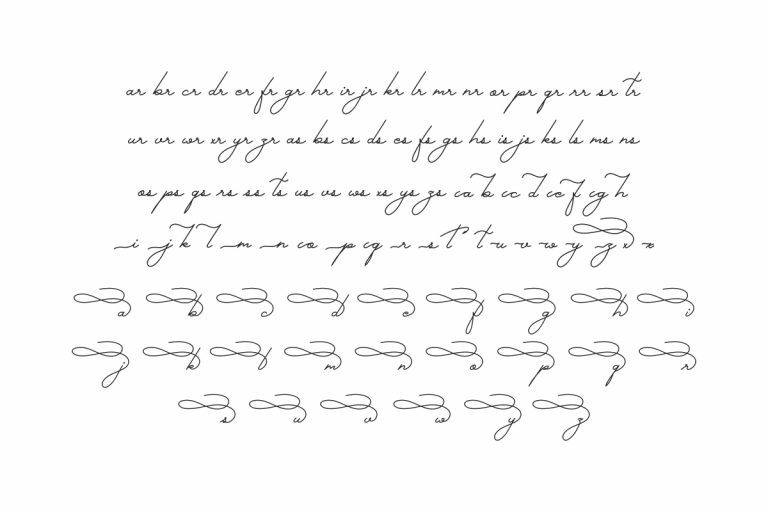 ar br cr dr er fr gr hr ir jr kr lr mr nr or pr qr rr sr tr
ur vr wr xr yr zr as bs cs ds es fs gs hs is js ks ls ms ns
os ps qs rs ss ts us vs ws xs ys zs a b c d e f g h
i j k l m n o p q r s t t u v w y z x x
a b c d e f g h i
j k l m n o p q r
s u v w y z